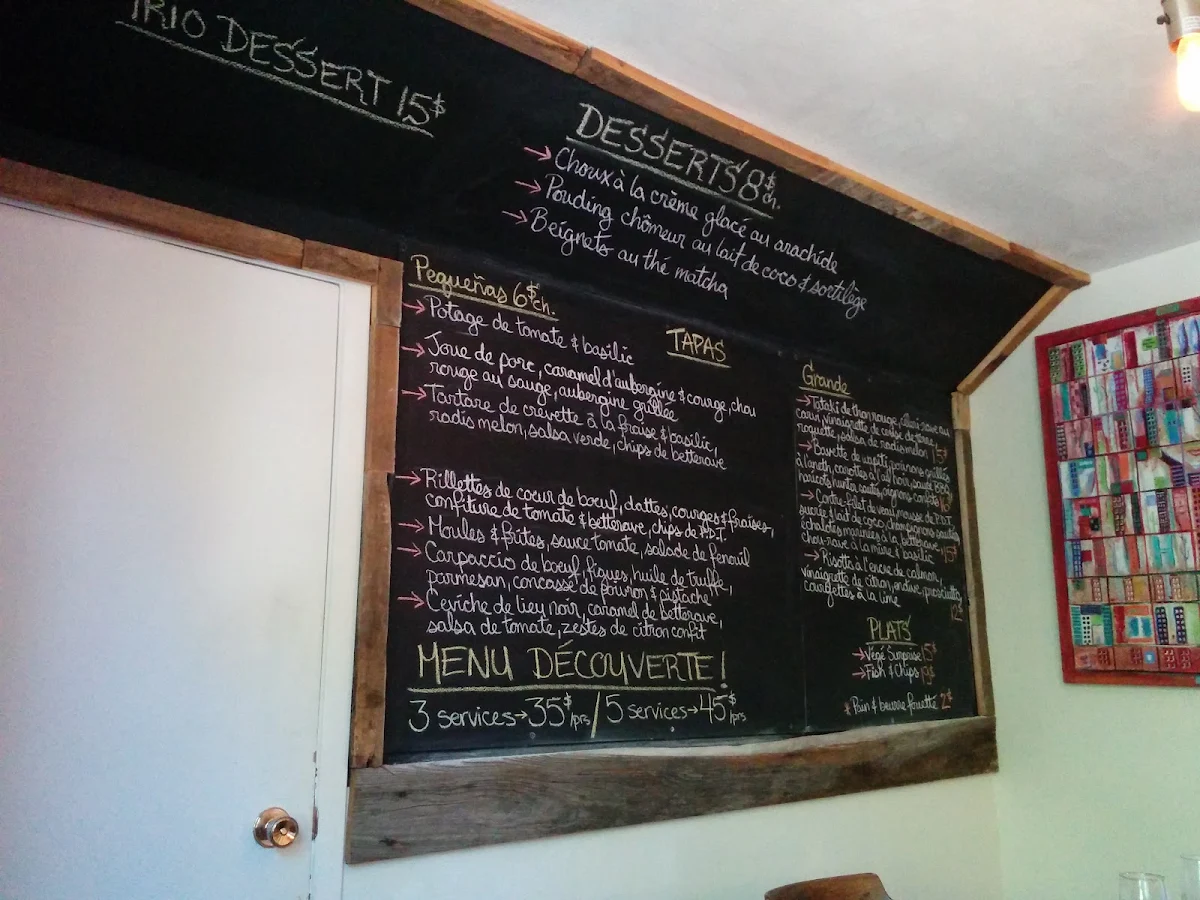 TRIO DESSERT 15$
DESSERTS 8$ ch.
→ Choux à la crème glacé au arachide
→ Pouding chômeur au lait de coco & sortilège
→ Beignets au thé matcha
Pequeñas 6$ ch.
→ Potage de tomate & basilic
→ Joue de porc, caramel d'aubergine & courge, chou
rouge au sauge, aubergine grillée
→ Tartare de crevette à la fraise & basilic,
radis melon, salsa verde, chips de betterave
→ Rillettes de coeur de boeuf, dattes, courges & fraises,
confiture de tomate & betterave, chips de P.D.T.
→ Moules & frites, sauce tomate, salade de fenouil
→ Carpaccio de boeuf, figues, huile de truffe,
parmesan, concassé de poivron & pistache
→ Ceviche de lieu noir, caramel de betterave,
salsa de tomate, zestes de citron confit
TAPAS
Grande
→ Tataki de thon rouge, céleri rave au
vinaigrette de
roquette, salsa de radis melon 15$
→ Bavette de wapiti, poivrons grillés
à l'aneth, carottes à l'ail noir, sauce BBQ
haricots sautés, oignons confits 16$
→ Contre-filet de veau, mousse de P.D.T.
sucrée & lait de coco, champignons sautés
échalotes marinées à la betterave,
chou-rave à la mûre & basilic 15$
→ Risotto à l'encre de calmar,
vinaigrette de citron, endive, prosciutto
courgettes à la lime
12$
PLATS
→ Végé Surprise 15$
→ Fish & Chips
* Pain & beurre fouetté 2$
MENU DÉCOUVERTE!
3 services → 35$/prs / 5 services → 45$/prs